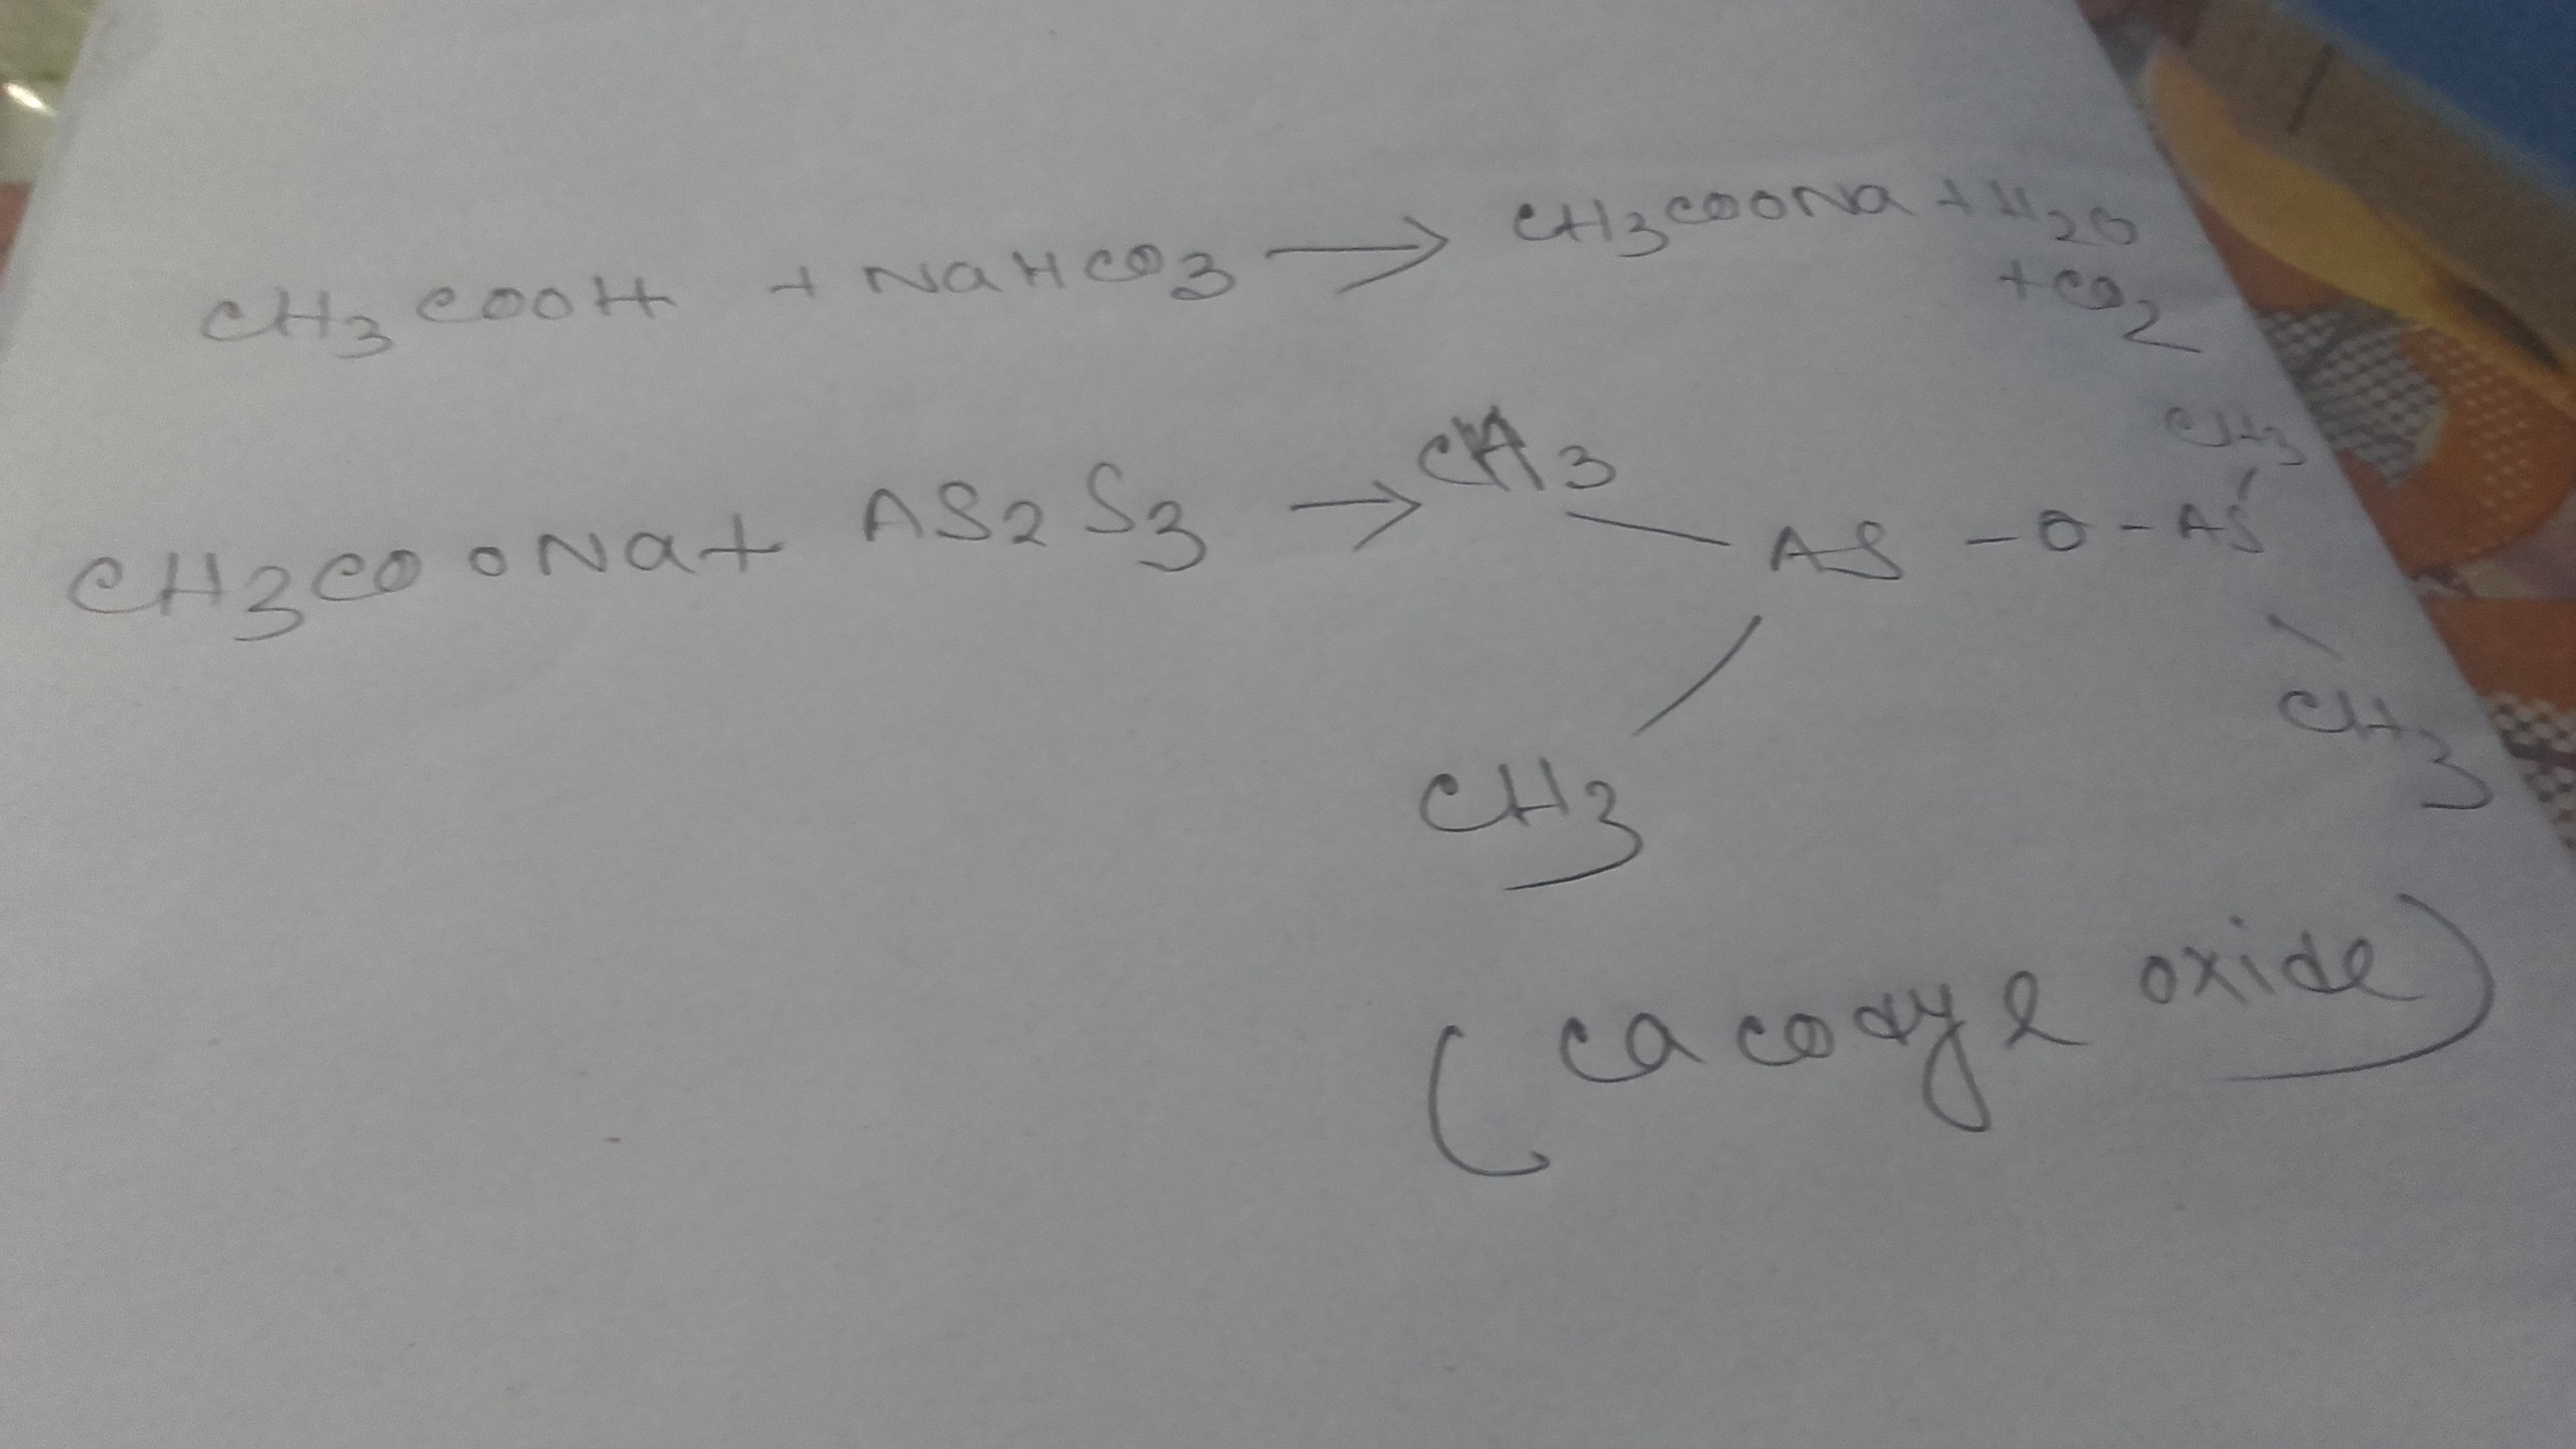 CH3COOH + NaHCO3 → CH3COONa + H2O
+ CO2
CH3COONa + AS2S3 → CH3 AS - O - AS CH3
CH3 CH3
(cacodyl oxide)